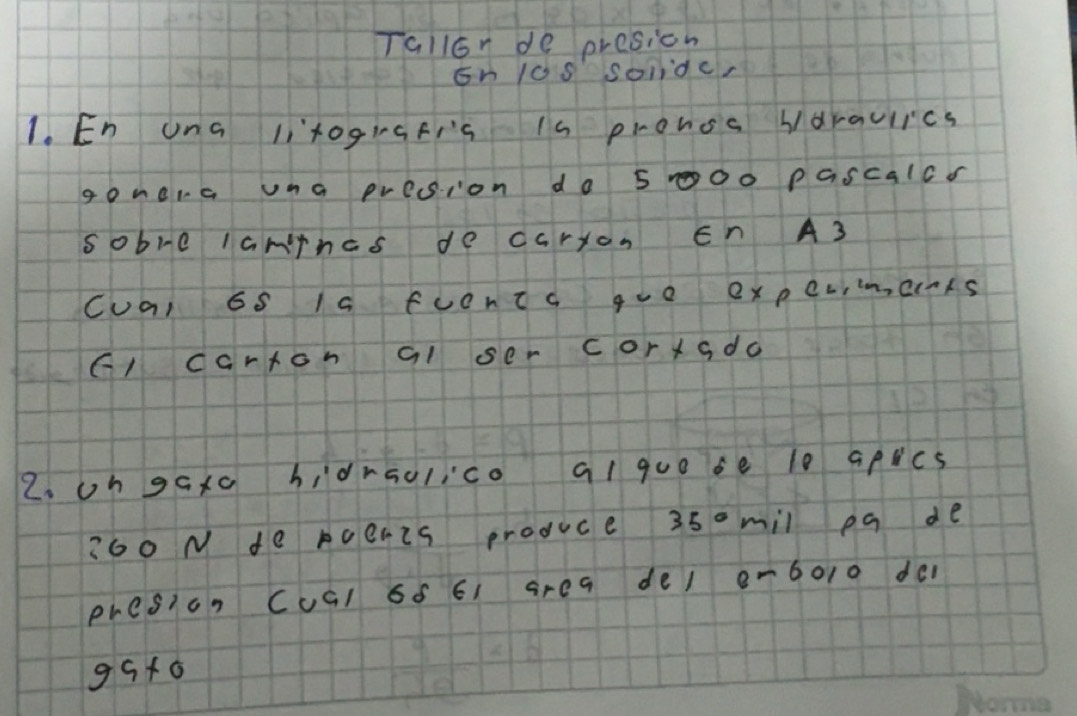 Taller de presion
En los solidos
1. En una litografia la prensa hidraulica
genera una presion de 5000 pascales
sobre laminas de carton En A3
Cual es la fuerza que experimenta
El carton al ser cortado
2. un gato hidraulico al que se le aplica
260 N de fuerza produce 350 mil pa de
presion Cual es El area del embolo del
gato
Norma